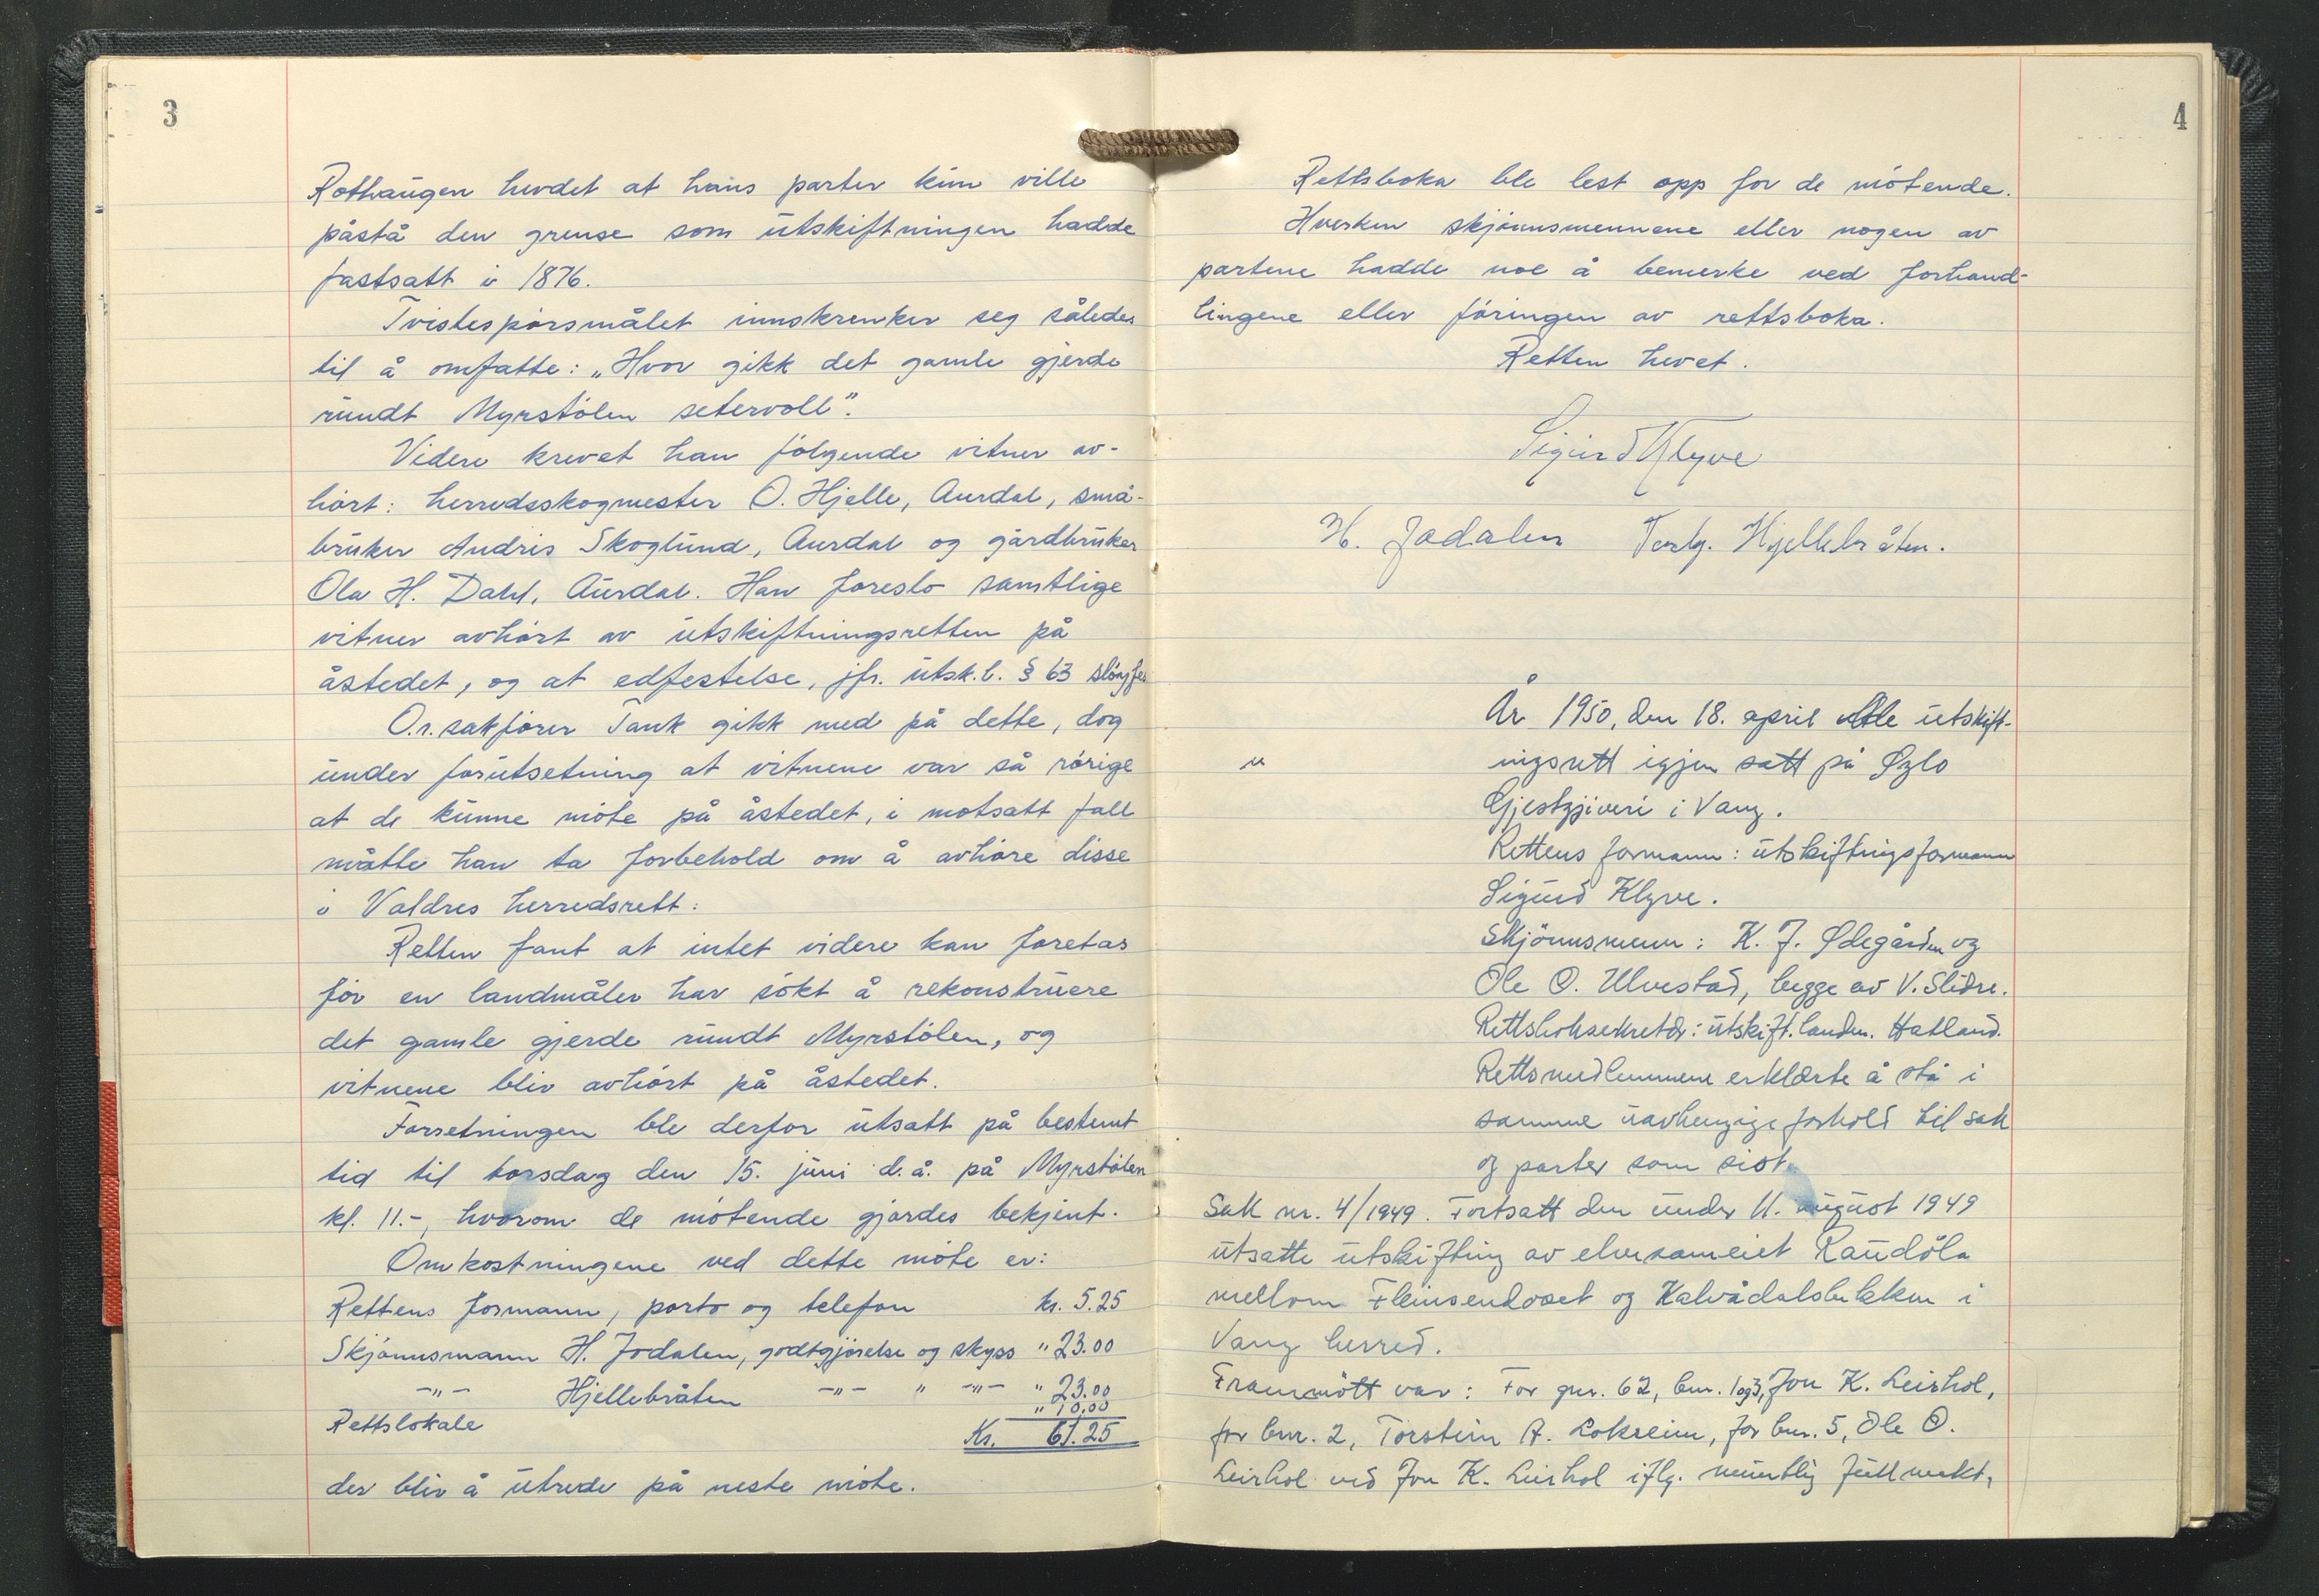 3
Rothaugen hevdet at hans parter kun ville
påstå den grense som utskiftningen hadde
fastsatt i 1876.
Tvistespørsmålet innskrenker seg således
til å omfatte: „Hvor gikk det gamle gjerde
rundt Myrstølen setervoll".
Videre krevet han følgende vitner av-
hørt: herredsskogmester O. Hjelle, Aurdal, små-
bruker Andris Skoglund, Aurdal og gårdbruker
Ola H. Dahl, Aurdal. Han foreslo samtlige
vitner avhørt av utskiftningsretten på
åstedet, og at edfestelse, jfr. utsk.l. § 63 sløyfes
O.r.sakfører Tank gikk med på dette, dog
under forutsetning at vitnene var så rørige
at de kunne møte på åstedet, i motsatt fall
måtte han ta forbehold om å avhøre disse
i Valdres herredsrett.
Retten fant at intet videre kan foretas
før en landmåler har søkt å rekonstruere
det gamle gjerde rundt Myrstølen, og
vitnene blir avhørt på åstedet.
Forretningen ble derfor utsatt på bestemt
tid til torsdag den 15. juni d.å. på Myrstølen
kl. 11.-, hvorom de møtende gjordes bekjent.
Omkostningene ved dette møte er:
Rettens formann, porto og telefon kr. 5.25
Skjønnsmann H. Jodalen, godtgjørelse og skyss " 23.00
-"- Hjellebråten -"- " -"- " 23.00
Rettslokale " 10.00
Kr. 61.25
der blir å utrede på neste møte.
4
Rettsboka ble lest opp for de møtende.
Hverken skjønnsmennene eller nogen av
partene hadde noe å bemerke ved forhand-
lingene eller føringen av rettsboka.
Retten hevet.
Sigurd Klyve
H. Jodalen Torlg. Hjellebråten.
År 1950, den 18. april ble utskift-
ningsrett igjen satt på Øylo
Gjestgjiveri i Vang.
Rettens formann: utskiftningsformann
Sigurd Klyve.
Skjønnsmenn: K. J. Ødegården og
Ole O. Ulvestad, begge av V. Slidre.
Rettsboksekretær: utskift.landm. Hatland.
Rettsmedlemmene erklærte å stå i
samme uavhengige forhold til sak
og parter som sist.
Sak nr. 4/1949. Fortsatt den under 11. august 1949
utsatte utskifting av elvesameiet Raudøla
mellom Fleinsendoset og Kalvådalsbekken i
Vang herred.
Frammøtt var: For gnr. 62, bnr. 1 og 3, Jon K. Leirhol,
for bnr. 2, Torstein A. Lokreim, for bnr. 5, Ole O.
Leirhol ved Jon K. Leirhol iflg. muntlig fullmakt,